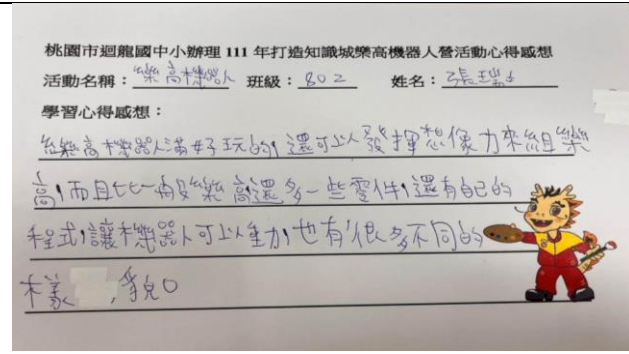 桃園市迴龍國中小辦理 111 年打造知識城樂高機器人營活動心得感想
活動名稱：樂高機器人 班級：802 姓名：張瑞
學習心得感想：
組樂高機器人滿好玩的，還可以發揮想像力來組樂
高，而且比一般樂高還多一些零件，還有自己的
程式，讓機器人可以動，也有很多不同的
樣 ，貌。